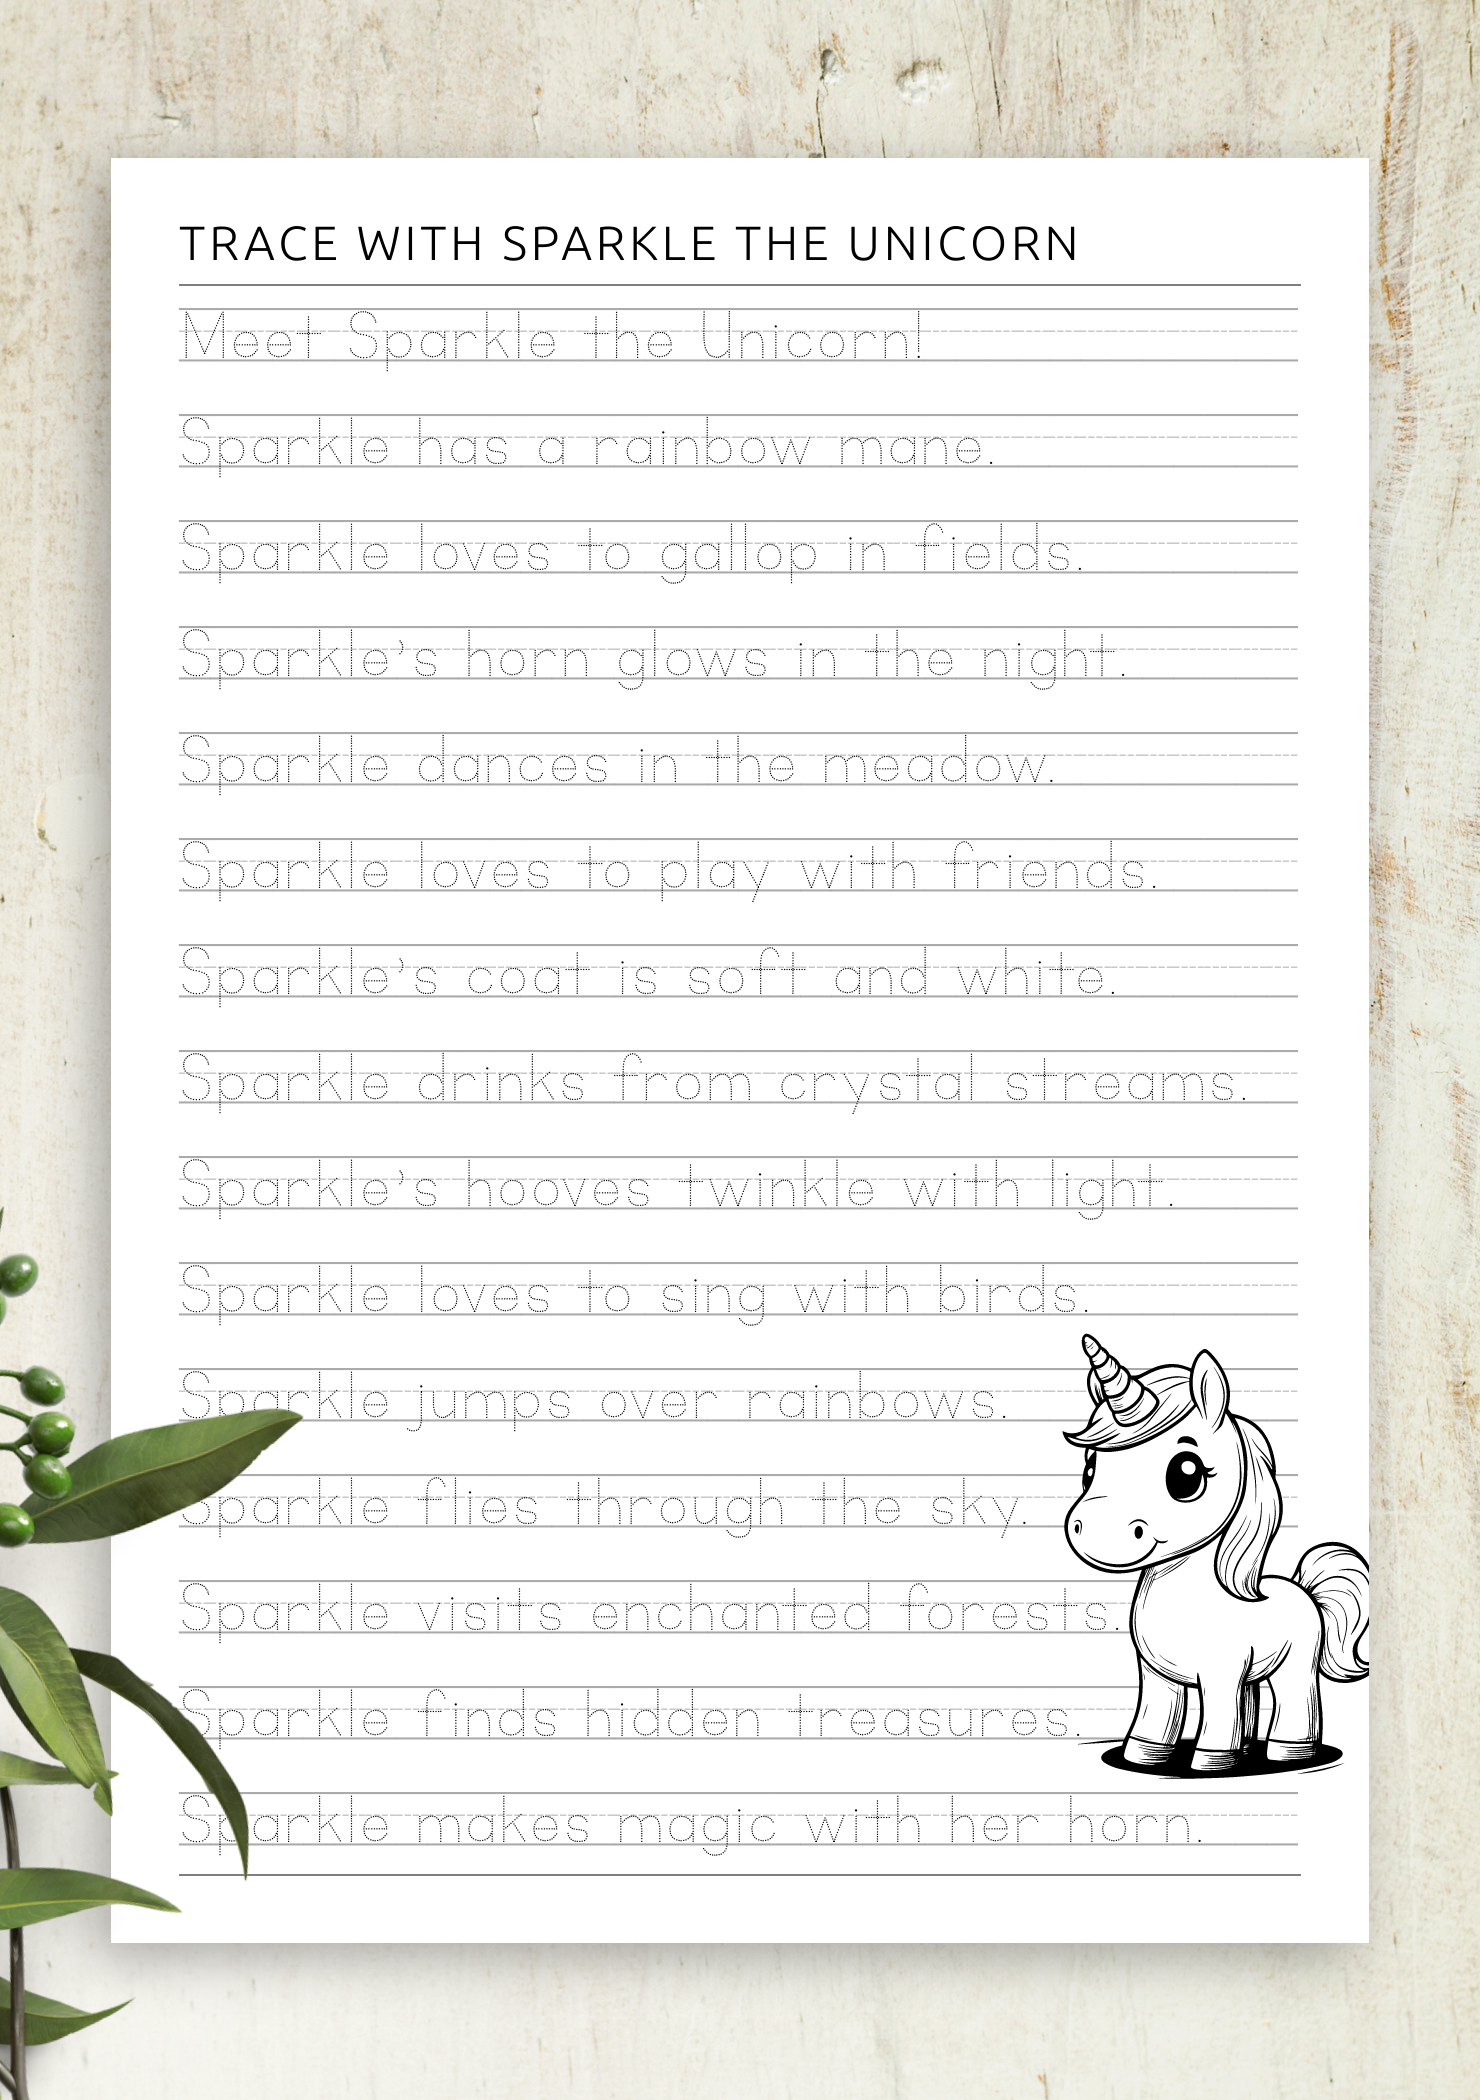 TRACE WITH SPARKLE THE UNICORN
Meet Sparkle the Unicorn!
Sparkle has a rainbow mane.
Sparkle loves to gallop in fields.
Sparkle’s horn glows in the night.
Sparkle dances in the meadow.
Sparkle loves to play with friends.
Sparkle’s coat is soft and white.
Sparkle drinks from crystal streams.
Sparkle’s hooves twinkle with light.
Sparkle loves to sing with birds.
Sparkle jumps over rainbows.
Sparkle flies through the sky.
Sparkle visits enchanted forests.
Sparkle finds hidden treasures.
Sparkle makes magic with her horn.